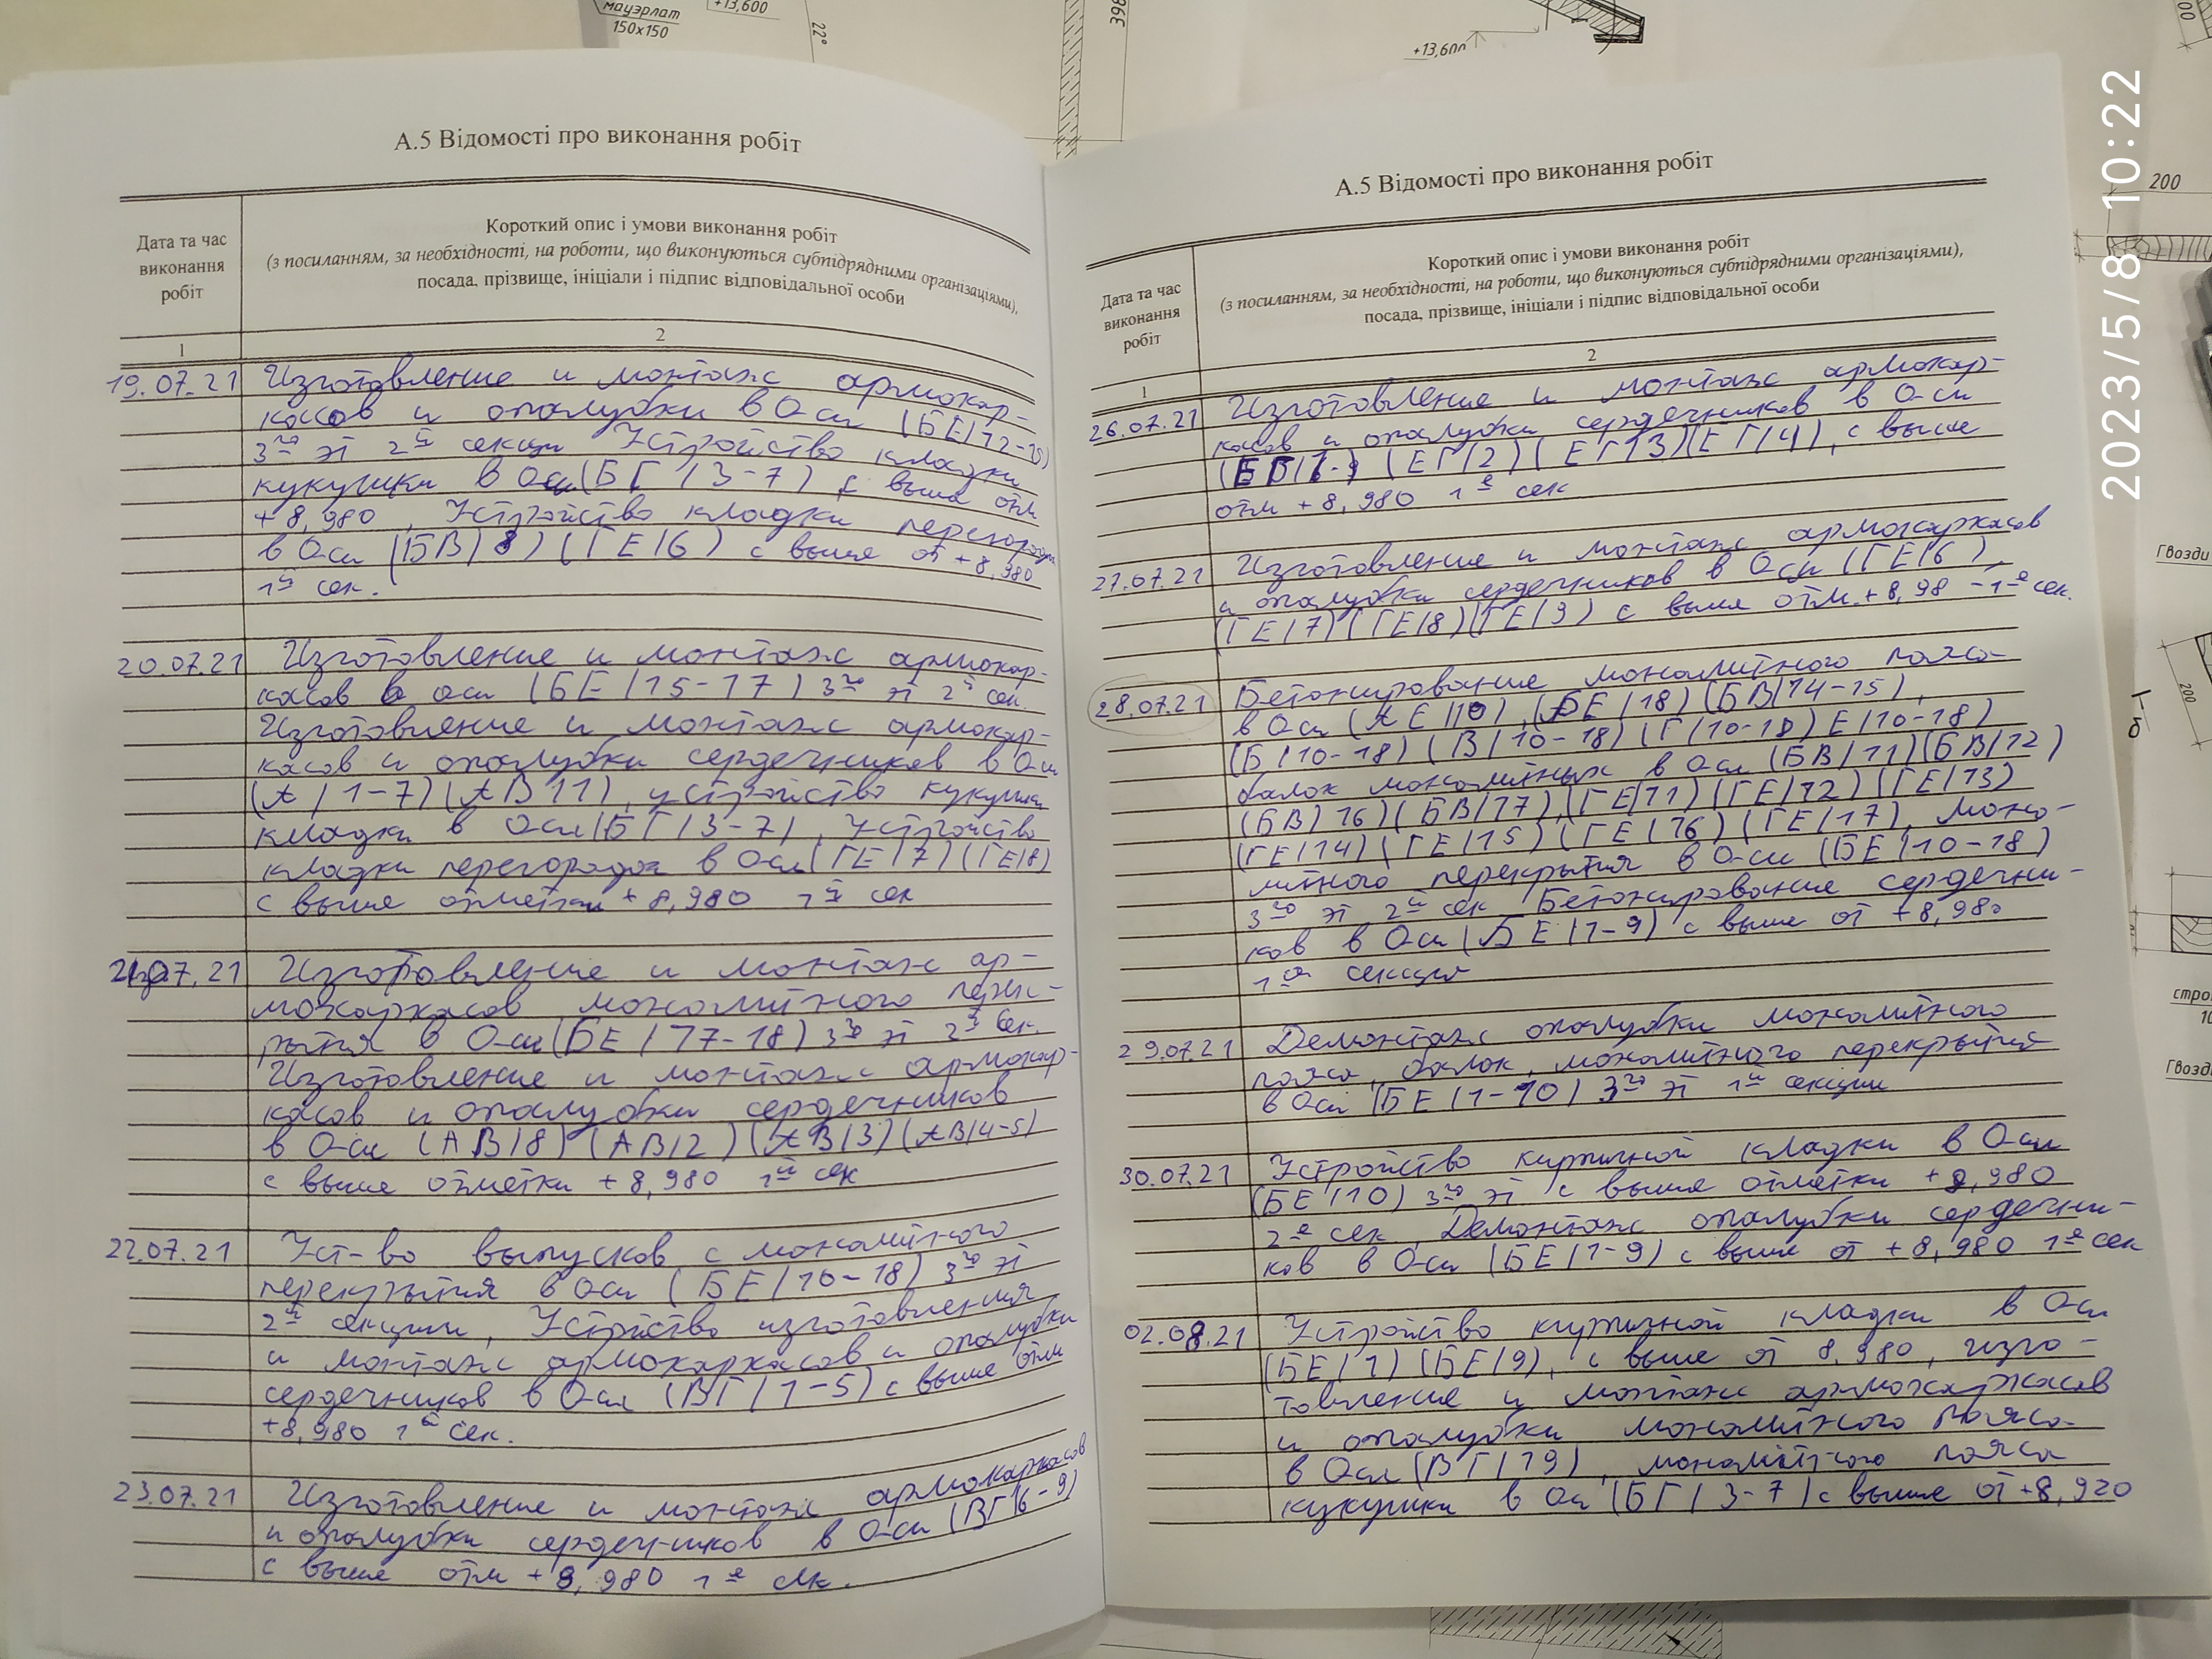 мауэрлат
150х150
+13,600
22°
398
+13,600
200
Гвозди
200
б
Гвозд
2023/5/8 10:22
А.5 Відомості про виконання робіт
Дата та час
виконання
робіт
Короткий опис і умови виконання робіт
(з посиланням, за необхідності, на роботи, що виконуються субпідрядними організаціями),
посада, прізвище, ініціали і підпис відповідальної особи
1 2
19.07.21 Изготовление и монтаж армокар-
касов и опалубки в Оси (БЕ/12-15)
3го эт 2й секции Устройство кладки
кукушки в Оси (БГ/3-7) с выше отм
+8,980, Устройство кладки перегородок
в Оси (БВ/8) (ГЕ/6) с выше от +8,980
1й сек.
20.07.21 Изготовление и монтаж армокар-
касов в оси (БЕ/15-17) 3го эт 2й сек.
Изготовление и монтаж армокар-
касов и опалубки сердечников в Оси
(А/1-7) (АВ/1), устройство кукушки
кладки в Оси (БГ/3-7), Устройство
кладки перегородок в Оси (ГЕ/7) (ГЕ/8)
с выше отметки +8,980 1й сек
21.07.21 Изготовление и монтаж ар-
мокаркасов монолитного перек-
рытия в Оси (БЕ/17-18) 3го эт 2й сек.
Изготовление и монтаж армокар-
касов и опалубки сердечников
в Оси (АВ/8) (АВ/2) (АВ/3) (АВ/4-5)
с выше отметки +8,980 1й сек
22.07.21 Уст-во выпусков с монолитного
перекрытия в Оси (БЕ/10-18) 3го эт
2й секции, Устрйство изготовления
и монтаж армокаркасов и опалубки
сердечников в Оси (ВГ/1-5) с выше отм
+8,980 1й сек.
23.07.21 Изготовление и монтаж армокаркасов
и опалубки сердечников в Оси (ВГ/6-9)
с выше отм +8,980 1й сек.
А.5 Відомості про виконання робіт
Дата та час
виконання
робіт
Короткий опис і умови виконання робіт
(з посиланням, за необхідності, на роботи, що виконуються субпідрядними організаціями),
посада, прізвище, ініціали і підпис відповідальної особи
1 2
26.07.21 Изготовление и монтаж армокар-
касов и опалубки сердечников в Оси
(ЕГ/2) (ЕГ/3) (ЕГ/4), с выше
отм +8,980 1й сек
27.07.21 Изготовление и монтаж армокаркасов
и опалубки сердечников в Оси (ГЕ/6)
(ГЕ/7) (ГЕ/8) (ГЕ/9) с выше отм. +8,98 - 1й сек.
28.07.21 Бетонирование монолитного пояса
в Оси (АЕ/10), (БЕ/18) (БВ/14-15),
(Б/10-18) (В/10-18) (Г/10-18) Е/10-18)
балок монолитных в Оси (БВ/11) (БВ/12)
(БВ/16) (БВ/17), (ГЕ/11) (ГЕ/12) (ГЕ/13)
(ГЕ/14) (ГЕ/15) (ГЕ/16) (ГЕ/17), моно-
литного перекрытия в Оси (БЕ/10-18)
3го эт 2й сек Бетонирование сердечни-
ков в Оси (БЕ/1-9) с выше от +8,980
1й секция
29.07.21 Демонтаж опалубки монолитного
пояса, балок, монолитного перекрытия
в Оси (БЕ/1-10) 3го эт 1й секции
30.07.21 Устройство кирпичной кладки в Оси
(БЕ/10) 3го эт с выше отметки +8,980
2й сек, Демонтаж опалубки сердечни-
ков в Оси (БЕ/1-9) с выше от +8,980 1й сек
02.08.21 Устройство кирпичной кладки в Оси
(БЕ/1) (БЕ/9), с выше от 8,980, изго-
товление и монтаж армокаркасов
и опалубки монолитного пояса
в Оси (ВГ/19), монолитного пояса
кукушки в Оси (БГ/3-7) с выше от +8,920